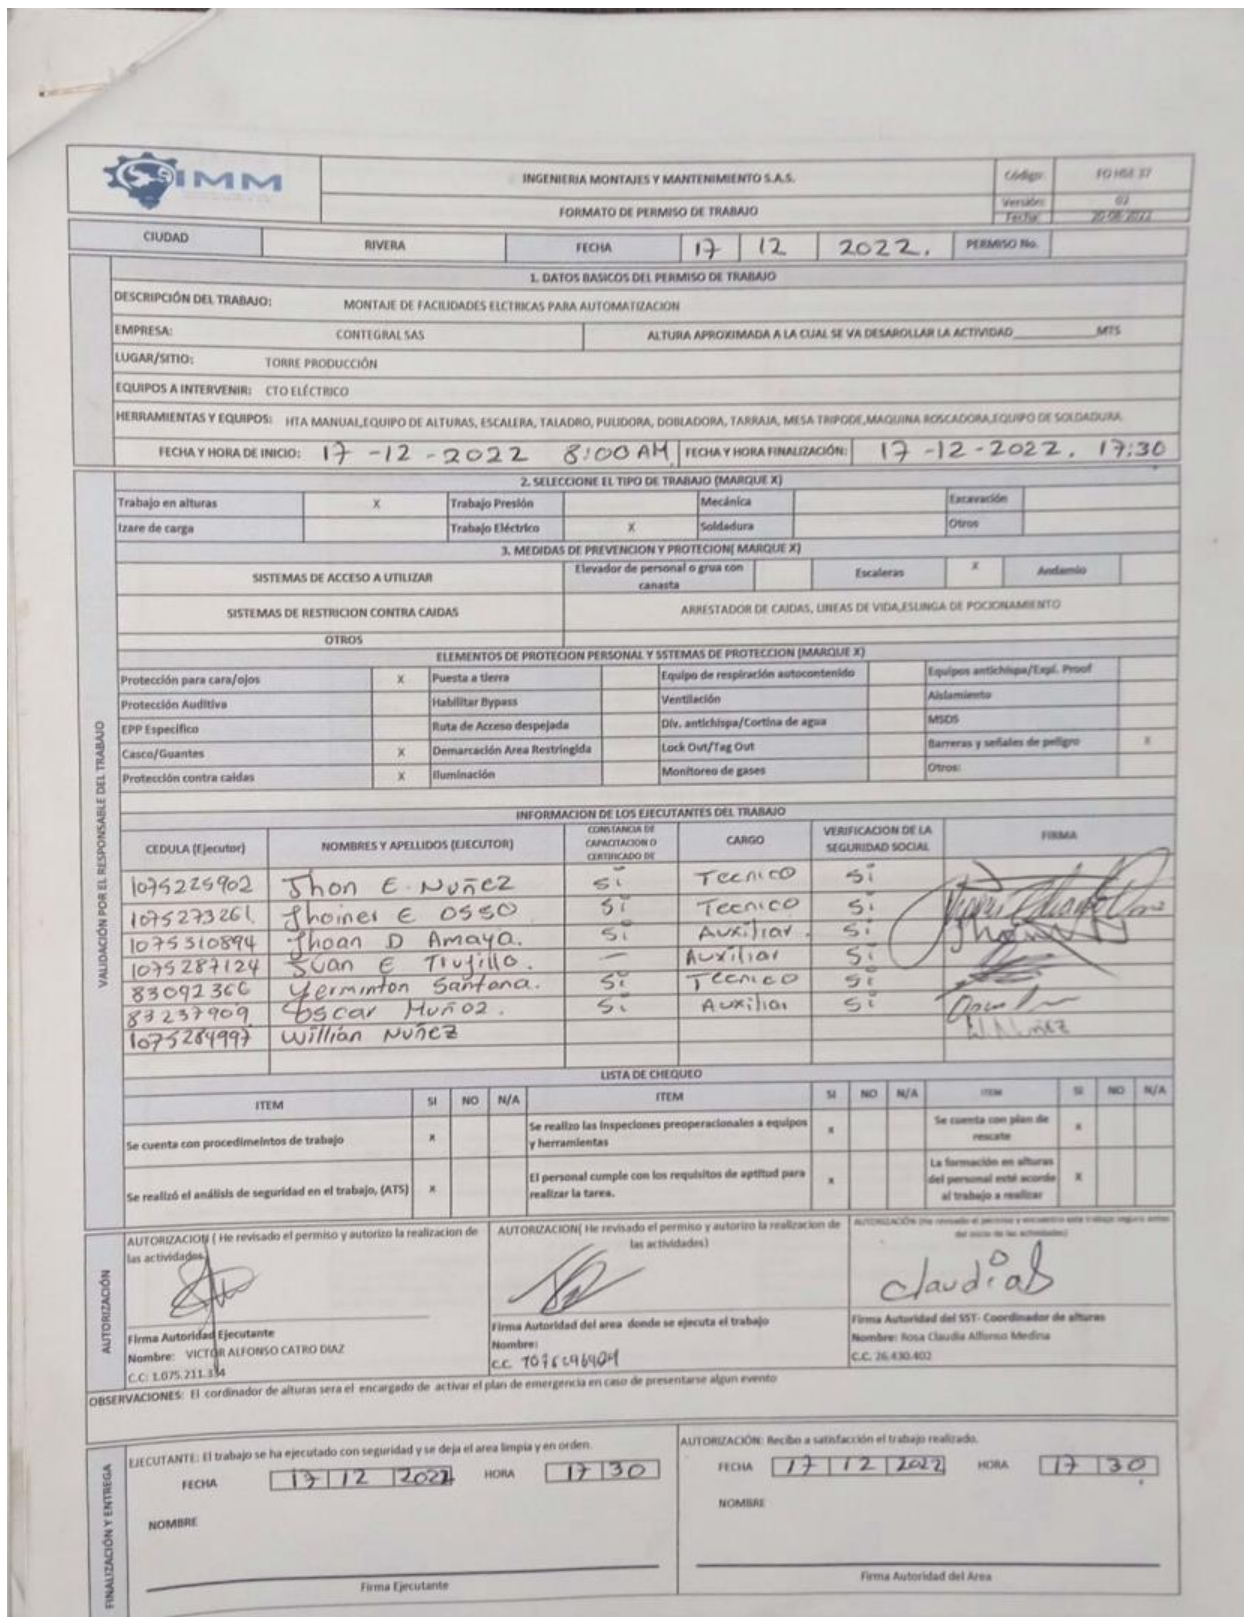 SIMM
INGENIERIA MONTAJES Y MANTENIMIENTO S.A.S.
Código: FO HSE 37
FORMATO DE PERMISO DE TRABAJO
Versión: 02
Fecha: 20-08-2022
CIUDAD RIVERA FECHA 17 12 2022. PERMISO No.
1. DATOS BASICOS DEL PERMISO DE TRABAJO
DESCRIPCIÓN DEL TRABAJO: MONTAJE DE FACILIDADES ELCTRICAS PARA AUTOMATIZACION
EMPRESA: CONTEGRAL SAS ALTURA APROXIMADA A LA CUAL SE VA DESAROLLAR LA ACTIVIDAD______MTS
LUGAR/SITIO: TORRE PRODUCCIÓN
EQUIPOS A INTERVENIR: CTO ELÉCTRICO
HERRAMIENTAS Y EQUIPOS: HTA MANUAL,EQUIPO DE ALTURAS, ESCALERA, TALADRO, PULIDORA, DOBLADORA, TARRAJA, MESA TRIPODE,MAQUINA ROSCADORA,EQUIPO DE SOLDADURA
FECHA Y HORA DE INICIO: 17-12-2022 8:00 AM FECHA Y HORA FINALIZACIÓN: 17-12-2022. 17:30
VALIDACIÓN POR EL RESPONSABLE DEL TRABAJO
2. SELECCIONE EL TIPO DE TRABAJO (MARQUE X)
Trabajo en alturas X Trabajo Presión Mecánica Excavación
Izare de carga Trabajo Eléctrico X Soldadura Otros
3. MEDIDAS DE PREVENCION Y PROTECION( MARQUE X)
SISTEMAS DE ACCESO A UTILIZAR Elevador de personal o grua con canasta Escaleras X Andamio
SISTEMAS DE RESTRICION CONTRA CAIDAS ARRESTADOR DE CAIDAS, LINEAS DE VIDA,ESLINGA DE POCIONAMIENTO
OTROS
ELEMENTOS DE PROTECION PERSONAL Y SSTEMAS DE PROTECCION (MARQUE X)
Protección para cara/ojos X Puesta a tierra Equipo de respiración autocontenido Equipos antichispa/Expl. Proof
Protección Auditiva Habilitar Bypass Ventilación Aislamiento
EPP Especifico Ruta de Acceso despejada Div. antichispa/Cortina de agua MSDS
Casco/Guantes X Demarcación Area Restringida Lock Out/Tag Out Barreras y señales de peligro X
Protección contra caidas X Iluminación Monitoreo de gases Otros:
INFORMACION DE LOS EJECUTANTES DEL TRABAJO
CEDULA (Ejecutor) NOMBRES Y APELLIDOS (EJECUTOR) CONSTANCIA DE CAPACITACION O CERTIFICADO DE CARGO VERIFICACION DE LA SEGURIDAD SOCIAL FIRMA
1075225902 Jhon E. Nuñez si Tecnico si
1075273261 Jhoiner E OSSO si Tecnico si
1075310894 Jhoan D Amaya. si Auxiliar. si
1075287124 Juan E Trujillo. — Auxiliar si
83092366 Yerminton Santana. si Tecnico si
83237909 Oscar Muñoz. si Auxiliar si
1075284997 Willián Nuñez W Nuñez
LISTA DE CHEQUEO
ITEM SI NO N/A ITEM SI NO N/A ITEM SI NO N/A
Se cuenta con procedimeintos de trabajo X Se realizo las inspeciones preoperacionales a equipos y herramientas X Se cuenta con plan de rescate X
Se realizó el análisis de seguridad en el trabajo, (ATS) X El personal cumple con los requisitos de aptitud para realizar la tarea. X La formación en alturas del personal esté acorde al trabajo a realizar X
AUTORIZACIÓN
AUTORIZACION ( He revisado el permiso y autorizo la realizacion de las actividades)
AUTORIZACION( He revisado el permiso y autorizo la realizacion de las actividades)
Claudia B
Firma Autoridad Ejecutante
Nombre: VICTOR ALFONSO CATRO DIAZ
C.C: 1.075.211.334
Firma Autoridad del area donde se ejecuta el trabajo
Nombre:
c.c.
Firma Autoridad del SST- Coordinador de alturas
Nombre: Rosa Claudia Alfonso Medina
C.C. 26.430.402
OBSERVACIONES: El cordinador de alturas sera el encargado de activar el plan de emergencia en caso de presentarse algun evento
FINALIZACIÓN Y ENTREGA
EJECUTANTE: El trabajo se ha ejecutado con seguridad y se deja el area limpia y en orden.
FECHA 17 12 2022 HORA 17 30
NOMBRE
Firma Ejecutante
AUTORIZACIÓN: Recibo a satisfacción el trabajo realizado.
FECHA 17 12 2022 HORA 17 30
NOMBRE
Firma Autoridad del Area